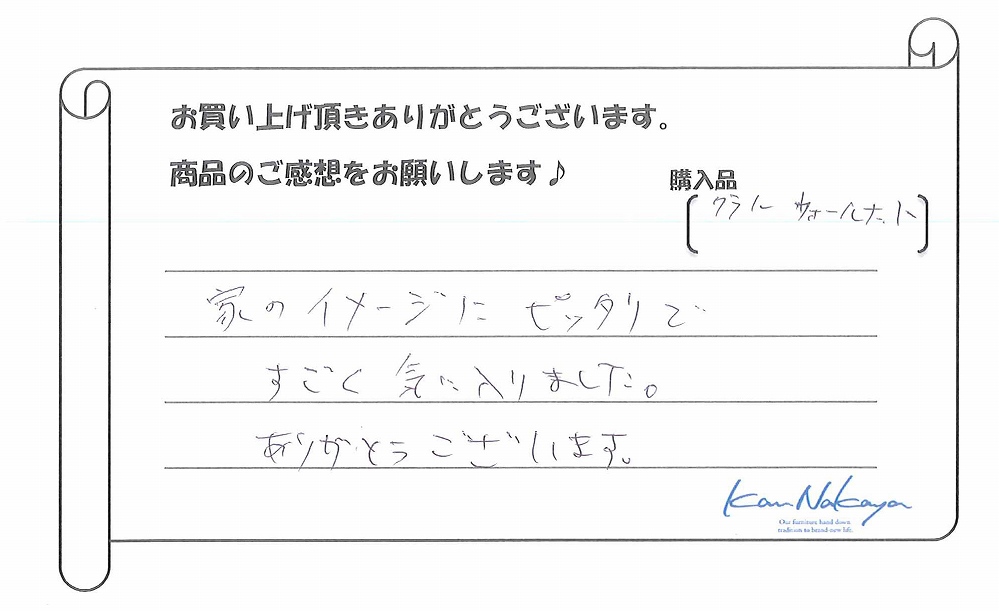 お買い上げ頂きありがとうございます。
商品のご感想をお願いします♪
購入品
クラル ウォールナット
家のイメージにピッタリで
すごく気に入りました。
ありがとうございます。
Kan Nakaya
Our furniture hand down
tradition to brand-new life.